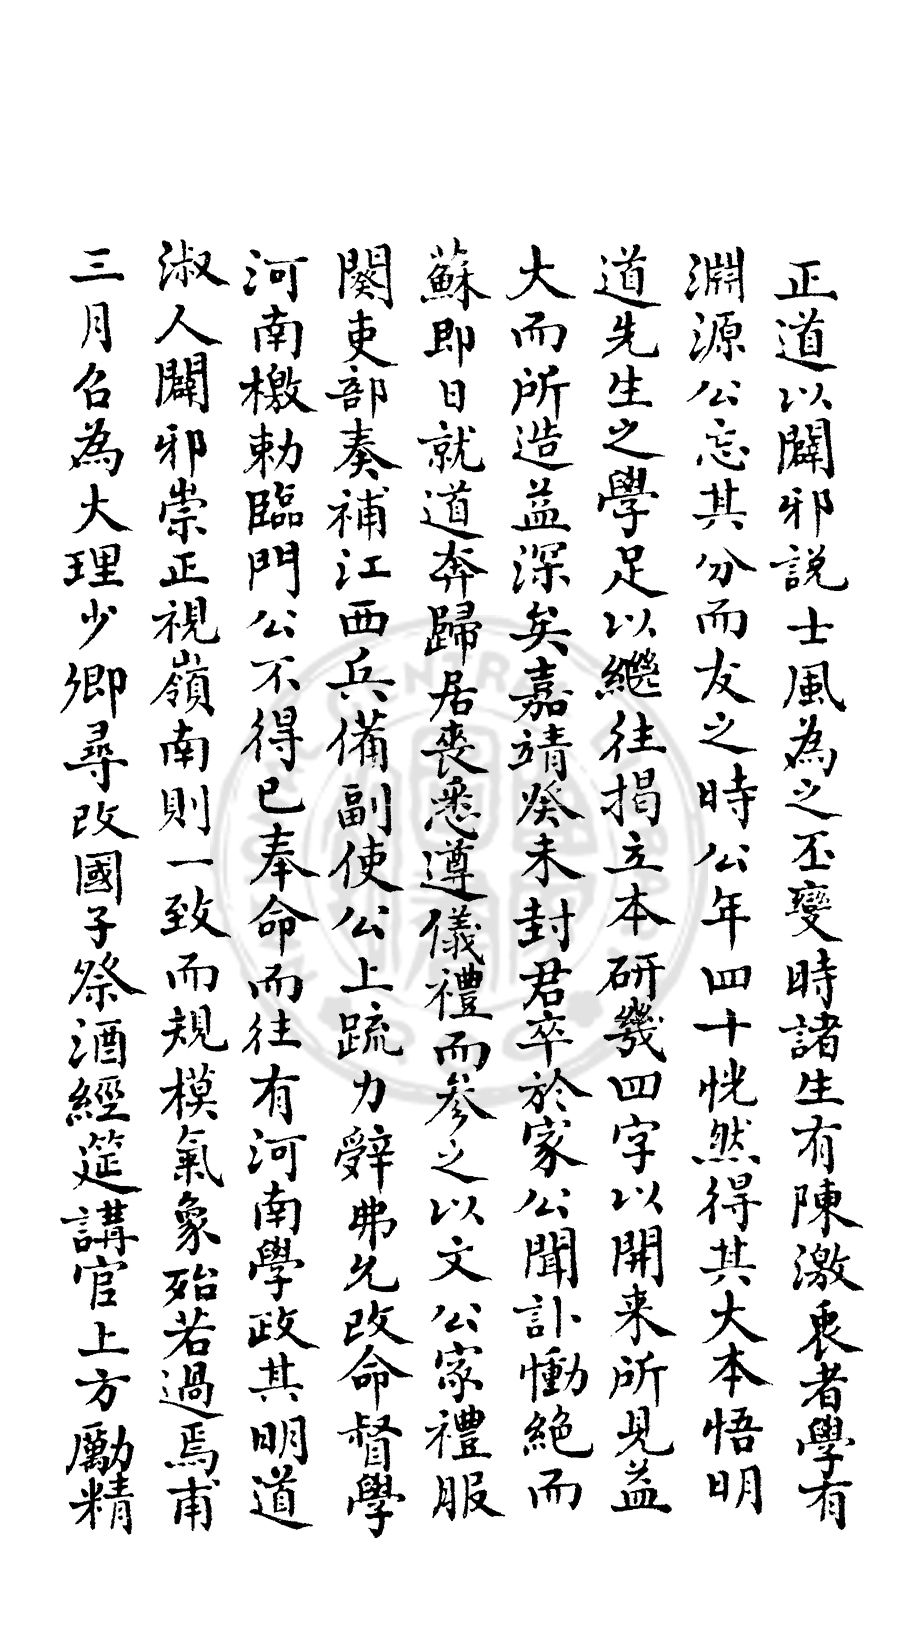 正道以闢邪說士風為之丕變時諸生有陳激衷者學有
淵源公忘其分而友之時公年四十恍然得其大本悟明
道先生之學足以繼往揭立本研幾四字以開来所見益
大而所造益深矣嘉靖癸未封君卒於家公聞訃慟絶而
蘇即日就道奔歸居喪悉遵儀禮而參之以文公家禮服
闋吏部奏補江西兵備副使公上疏力辭弗允改命督學
河南檄勅臨門公不得已奉命而往有河南學政其明道
淑人闢邪崇正視嶺南則一致而規模氣象殆若過焉甫
三月召為大理少卿尋改國子祭酒經筵講官上方勵精